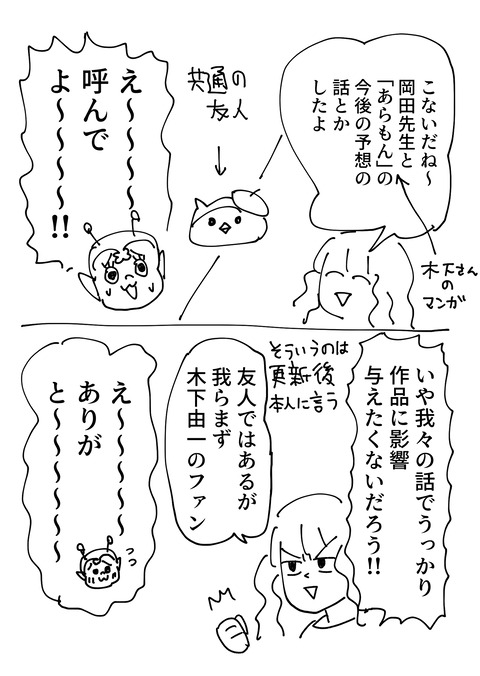 こないだね〜
岡田先生と
「あらもん」の
今後の予想の
話とか
したよ
木下さん
の
マンガ
共通の
友人
え〜〜〜〜
呼んで
よ〜〜〜〜〜!!
いや我々の話でうっかり
作品に影響
与えたくないだろう!!
そういうのは
更新後
本人に言う
友人ではあるが
我らまず
木下由一のファン
え〜〜〜〜〜
ありが
と〜〜〜〜〜〜